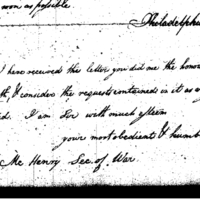 soon as possible.
Philadelpha
I have received the letter you did me the hono
th, & consider the requests contained in it as
d. I am Sir with much esteem
your most obedient & humb
Mc Henry Sec. of War.